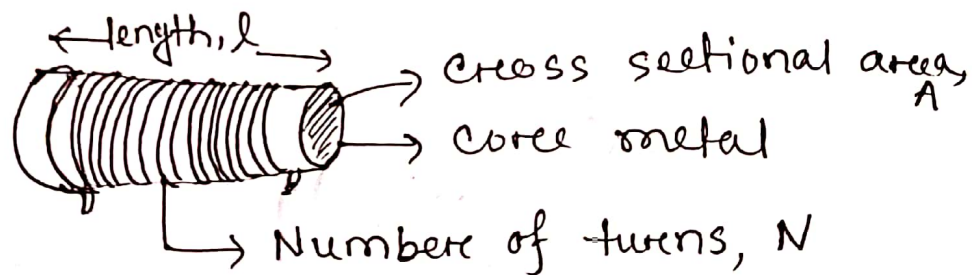 length, l
cross sectional area, A
core metal
Number of turns, N